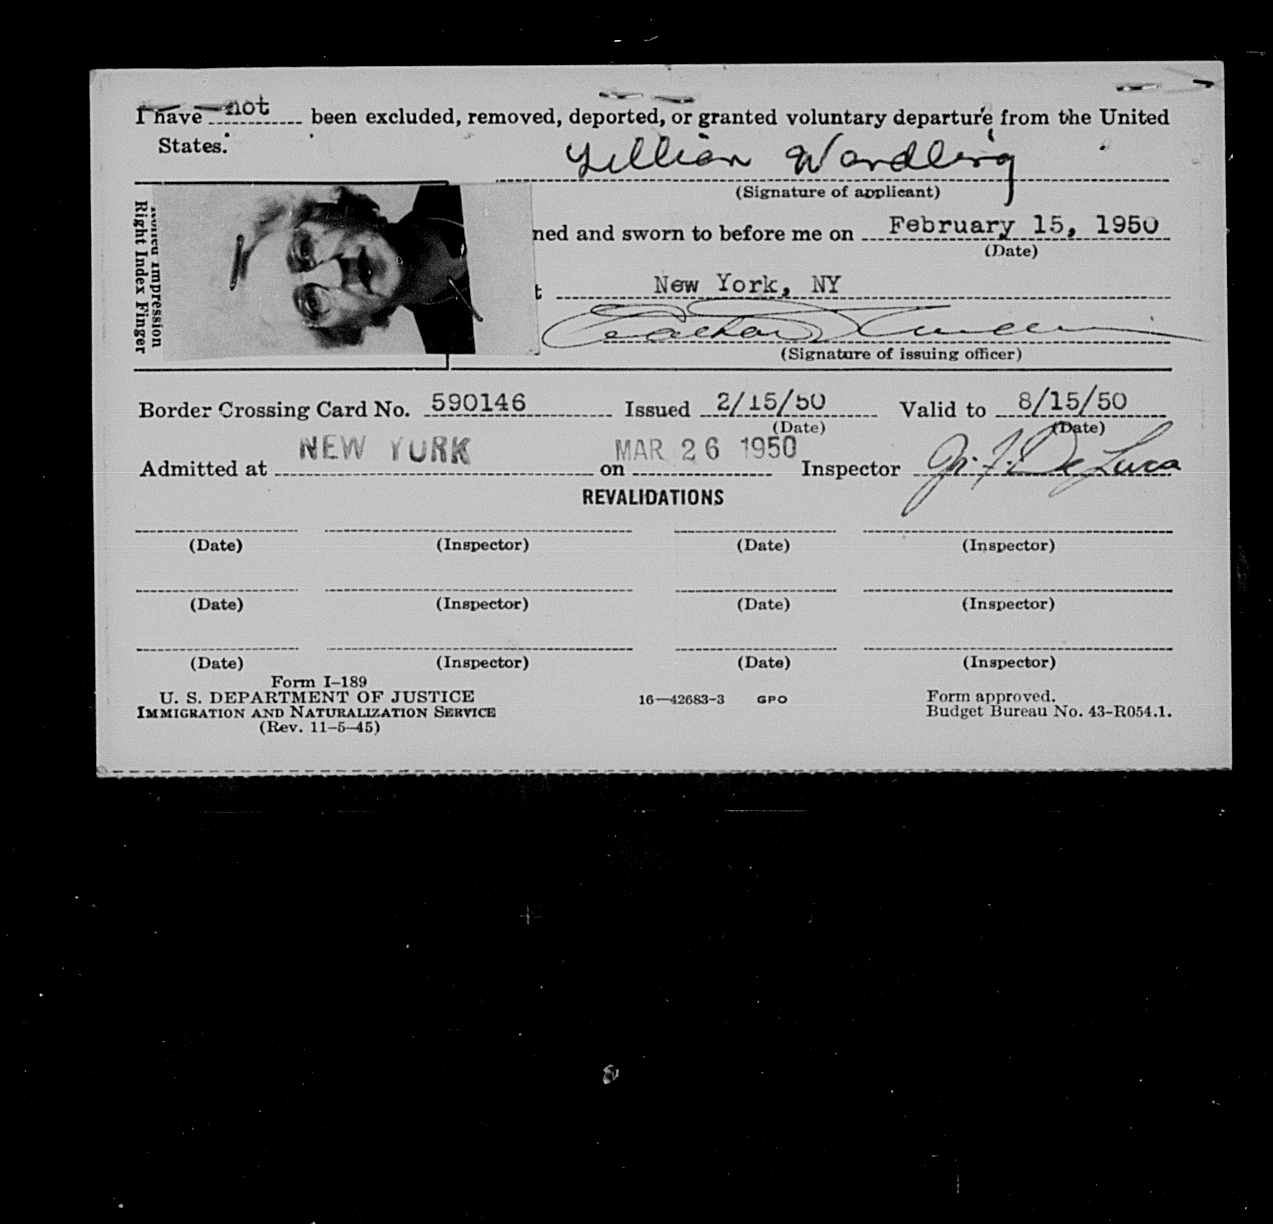 I have not been excluded, removed, deported, or granted voluntary departure from the United
States.
Lillian Wardling
(Signature of applicant)
Rolled Impression
Right Index Finger
ned and sworn to before me on February 15, 1950
(Date)
t New York, NY
(Signature of issuing officer)
Border Crossing Card No. 590146 Issued 2/15/50 Valid to 8/15/50
(Date) (Date)
NEW YORK MAR 26 1950
Admitted at on Inspector De Luca
REVALIDATIONS
(Date) (Inspector) (Date) (Inspector)
(Date) (Inspector) (Date) (Inspector)
(Date) (Inspector) (Date) (Inspector)
Form I-189
U. S. DEPARTMENT OF JUSTICE 16—42683-3 GPO Form approved.
IMMIGRATION AND NATURALIZATION SERVICE Budget Bureau No. 43-R054.1.
(Rev. 11-5-45)